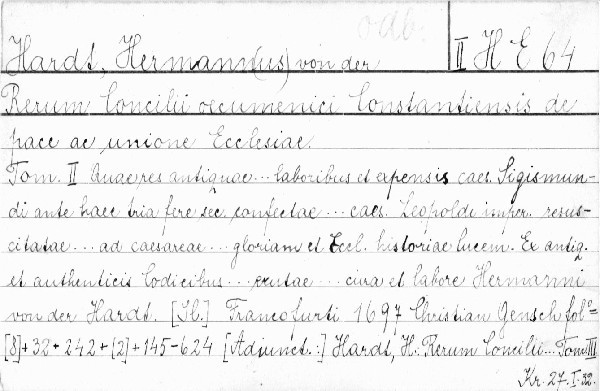 odb.
Hardt, Hermann(us) von der II H E 64
Rerum Concilii oecumenici Constantiensis de
pace ac unione Ecclesiae.
Tom. II Quae res antiquae ... laboribus et expensis caes. Sigismun-
di ante haec tria fere sêc. confectae ... caes. Leopoldi imper. resus-
citatae ... ad caesareae ... gloriam et Eccl. historiae lucem. Ex antiq.
et authenticis Codicibus ... erutae ... cura et labore Hermanni
von der Hardt. [Il.] Francofurti 1697 Christian Gensch fol°=
[8]+32+242+[2]+145-624 [Adiunct.:] Hardt, H.: Rerum Concilii ... Tom. III
Kr. 27.I.32.